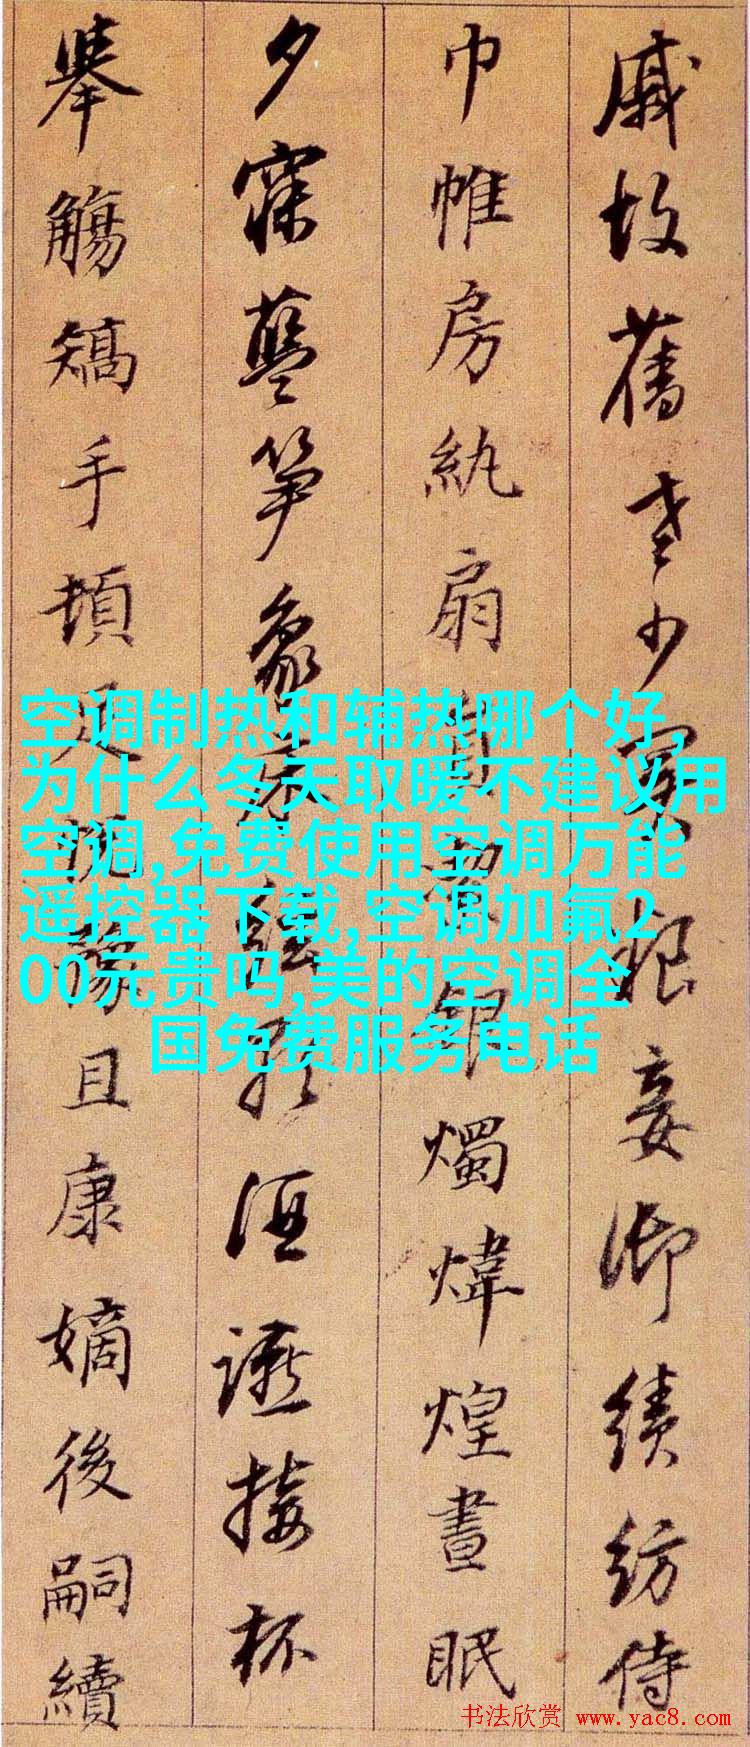 戚故舊老少異粮妾御績紡侍
巾帷房紈扇員潔銀燭煒煌晝眠
夕寐藍笋象床絃歌酒讌接杯
舉觴矯手頓足悅豫且康嫡後嗣續
空调制热和辅热哪个好,
为什么冬天取暖不建议用
空调,免费使用空调万能
遥控器下载,空调加氟2
00元贵吗,美的空调全
国免费服务电话
书法欣赏 www.yac8.com